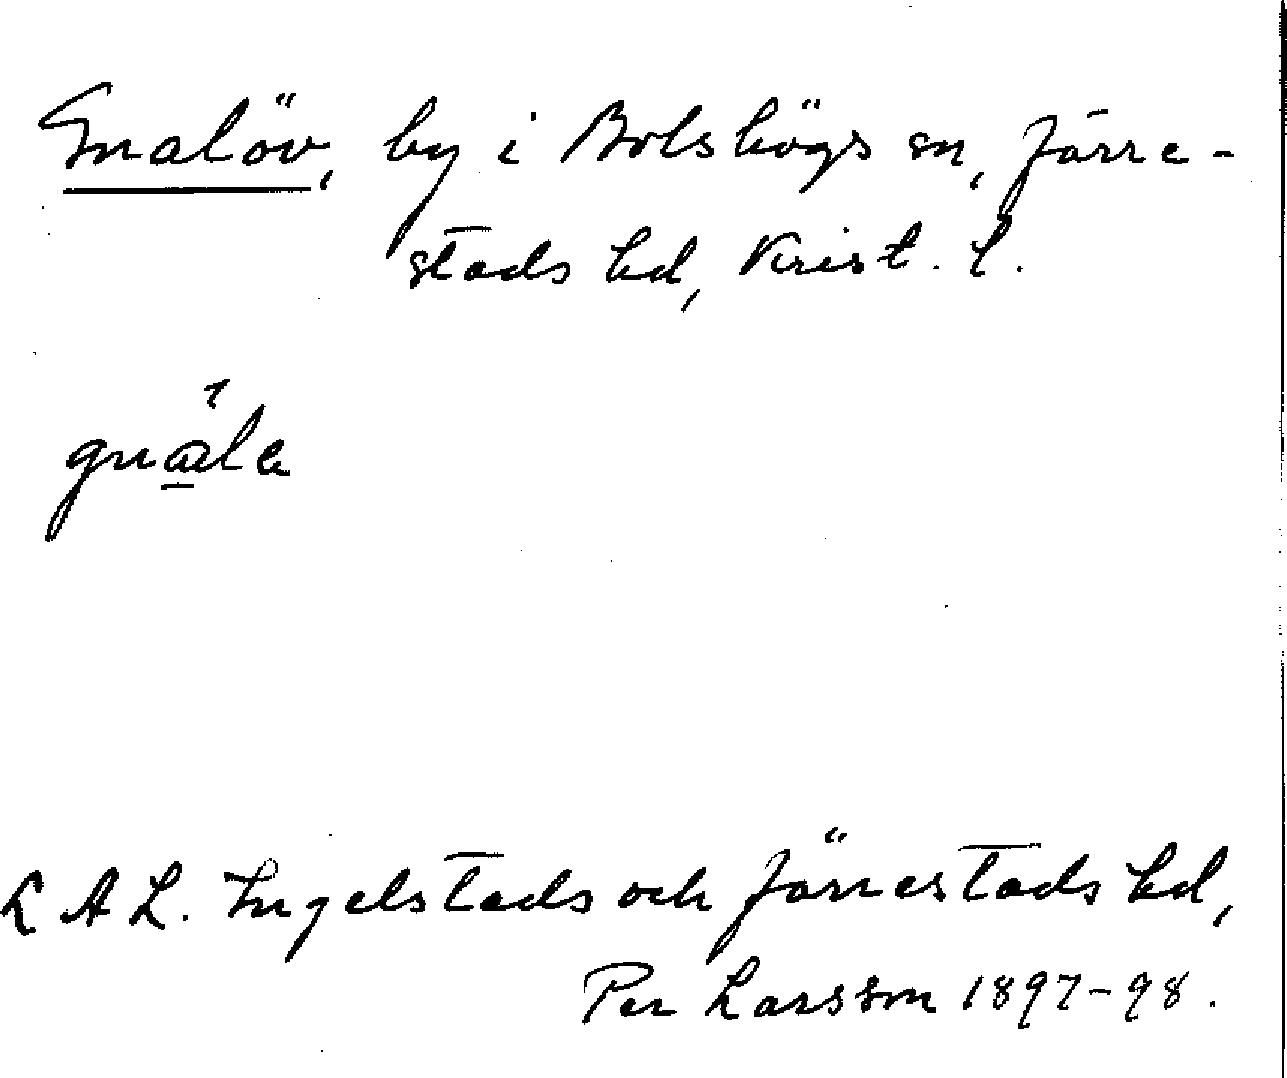 Gnalöv, by i Bolshögs sn, Järre-
stads hd, Krist. l.
gnala
L A L. Ingelstads och Järrestads hd,
Per Larsson 1897-98.